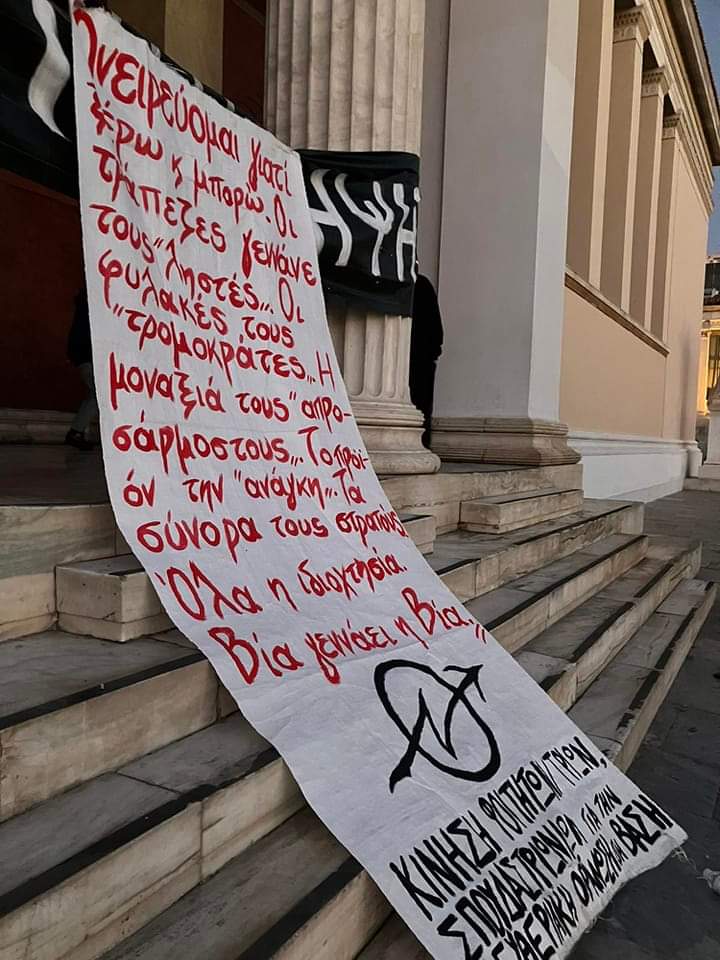 Ὀνειρεύομαι γιατί
ξέρω κ μπορώ. Οι
τράπεζες γεννάνε
τους "ληστές". Οι
φυλακές τους
"τρομοκράτες". Η
μοναξιά τους "απρο-
σάρμοστους". Το προϊ-
όν την "ανάγκη". Τα
σύνορα τους στρατούς
Όλα η ιδιοκτησία.
Βία γεννάει η Βία."
ΚΙΝΗΣΗ ΦΟΙΤΗΤΩΝ/ΤΡΙΩΝ,
ΣΠΟΥΔΑΣΤΡΙΩΝ/ΩΝ ΓΙΑ ΤΗΝ
ΕΛΕΥΘΕΡΙΑΚΗ ΟΡΓΑΝΩΣΗ ΣΤΗ ΒΑΣΗ
ΗΨΗ